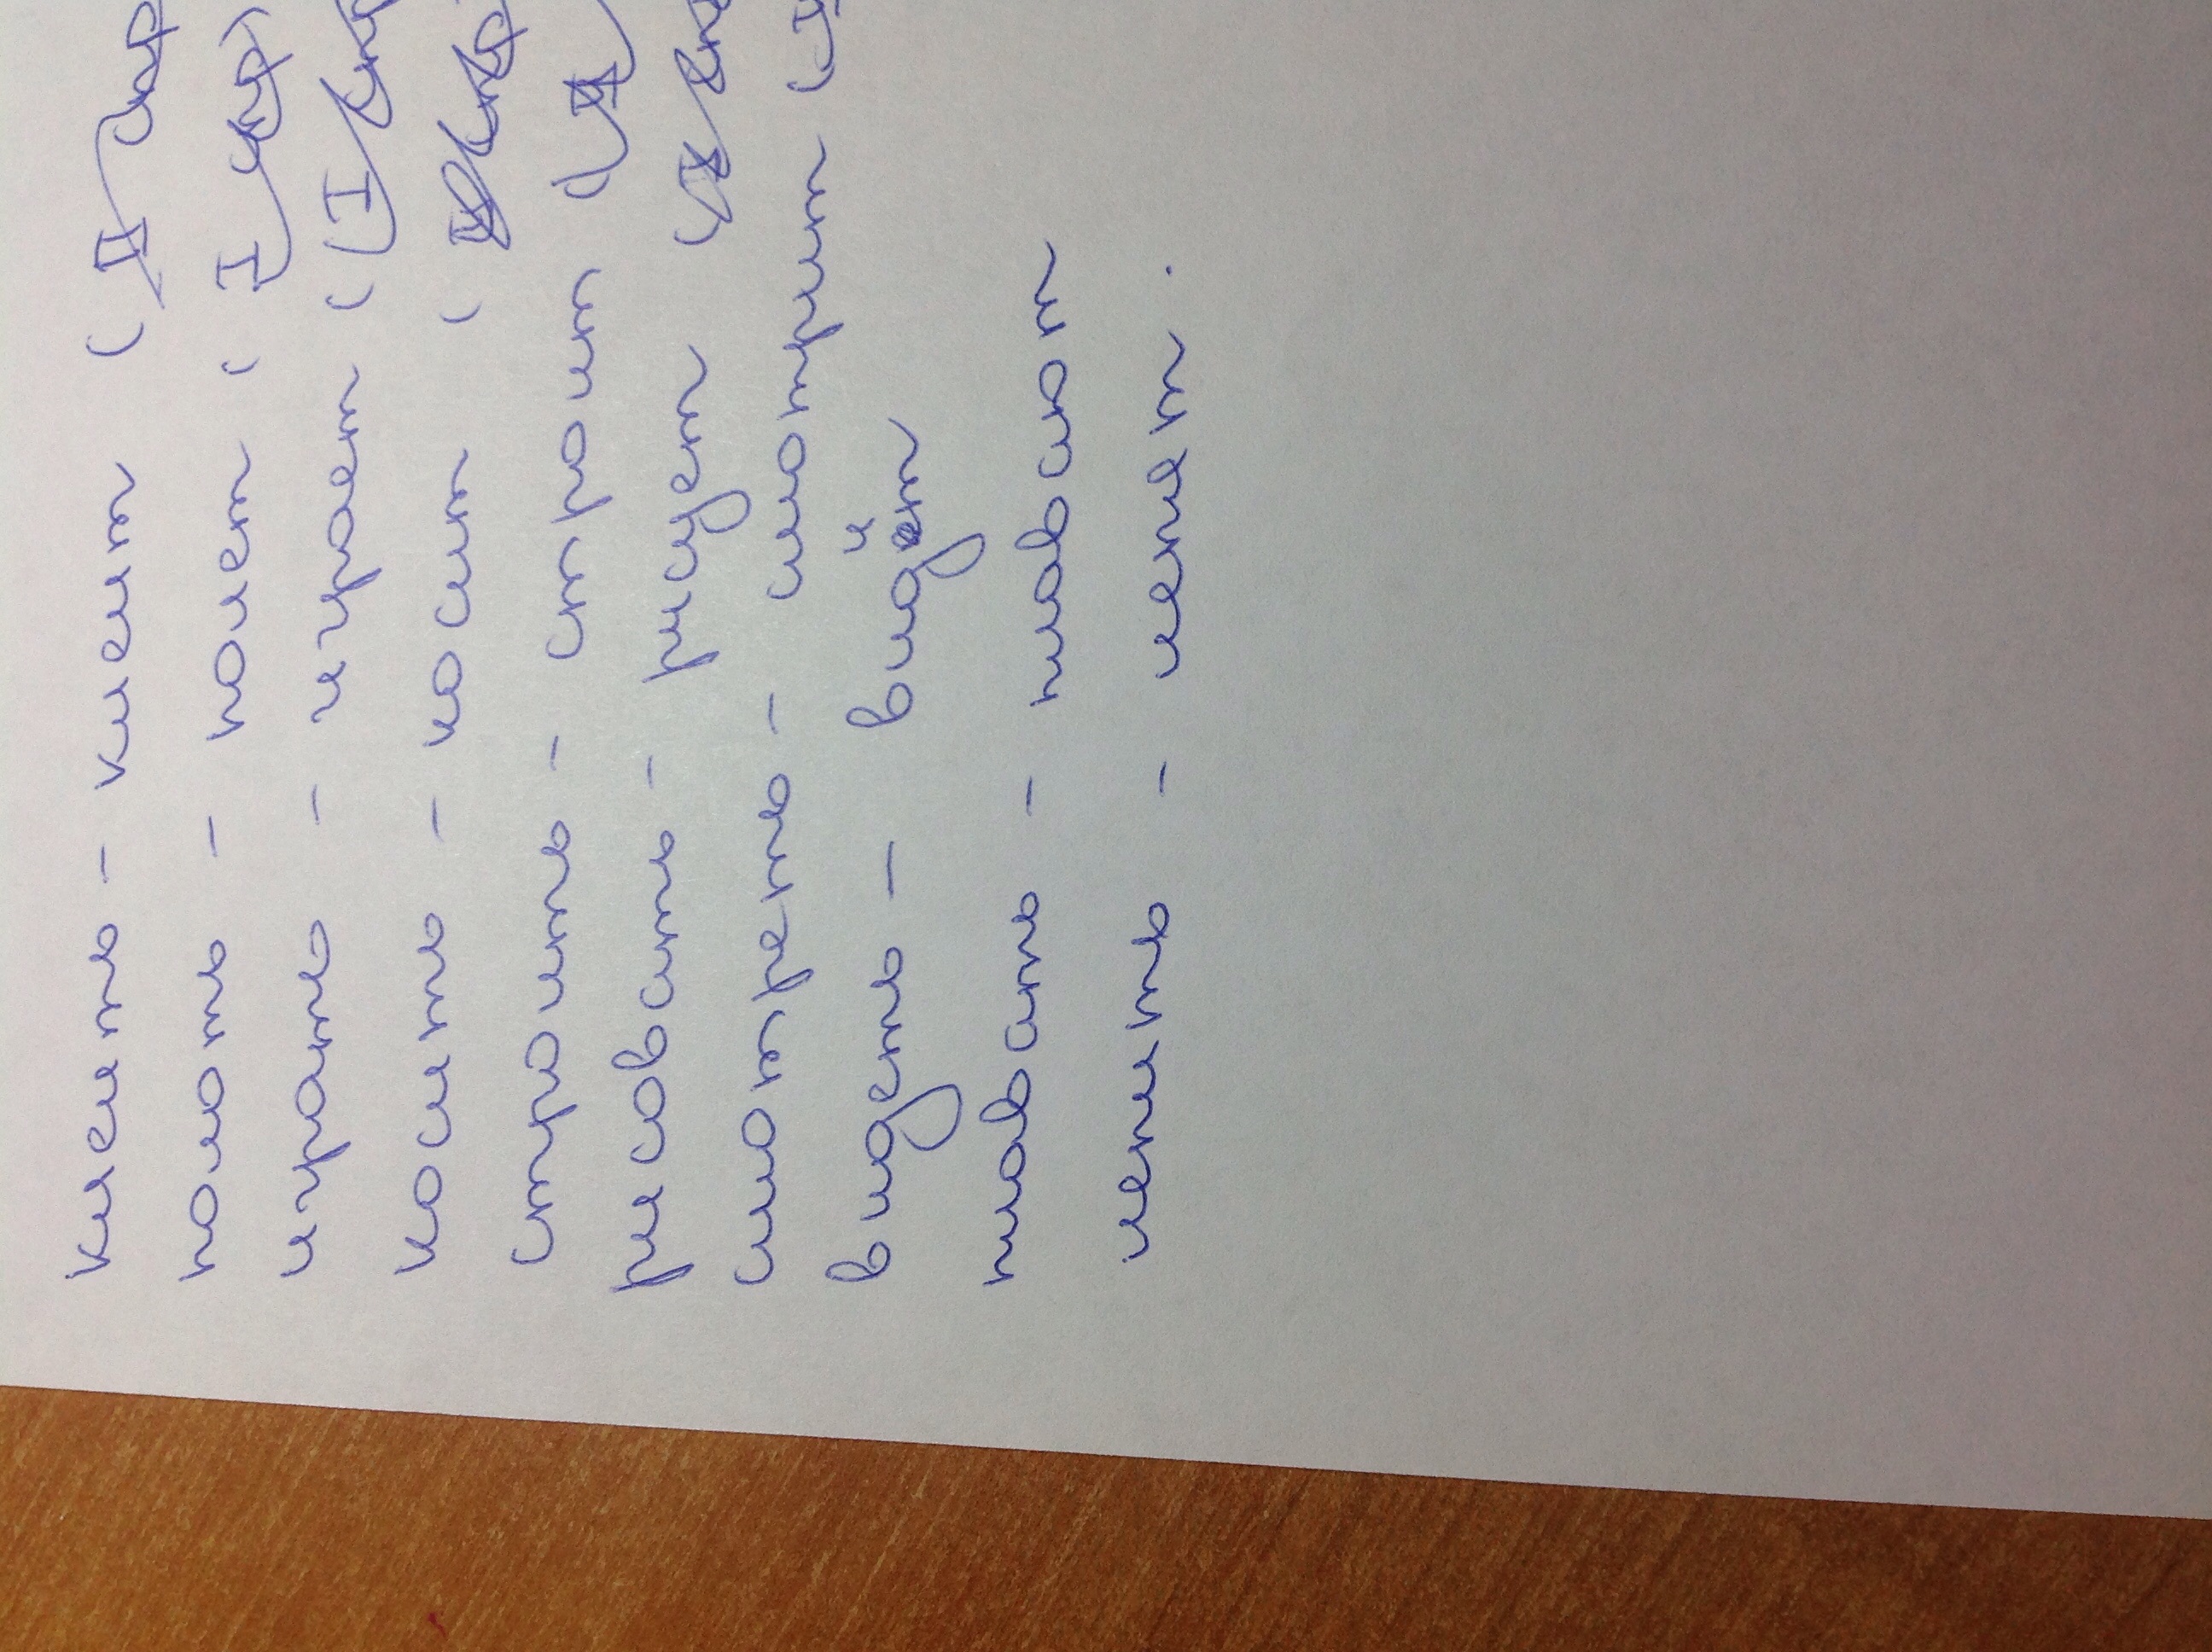 клеить - клеит (II спр
полоть - полет ( I спр)
играть - играет ( I спр
косить - косит (
строить - строит (II
рисовать - рисует
смотреть - смотрит (
видеть - видит
плавать - плавают
лепить - лепет.